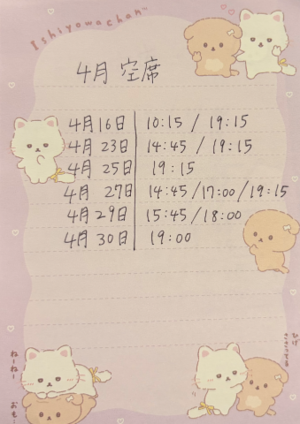 Ishiyowachan~
4月 空席
4月16日 10:15 / 19:15
4月 23日 14:45 / 19:15
4月 25日 19:15
4月 27日 14:45/17:00/19:15
4月29日 15:45/18:00
4月 30日 19:00
ねーねー
おも